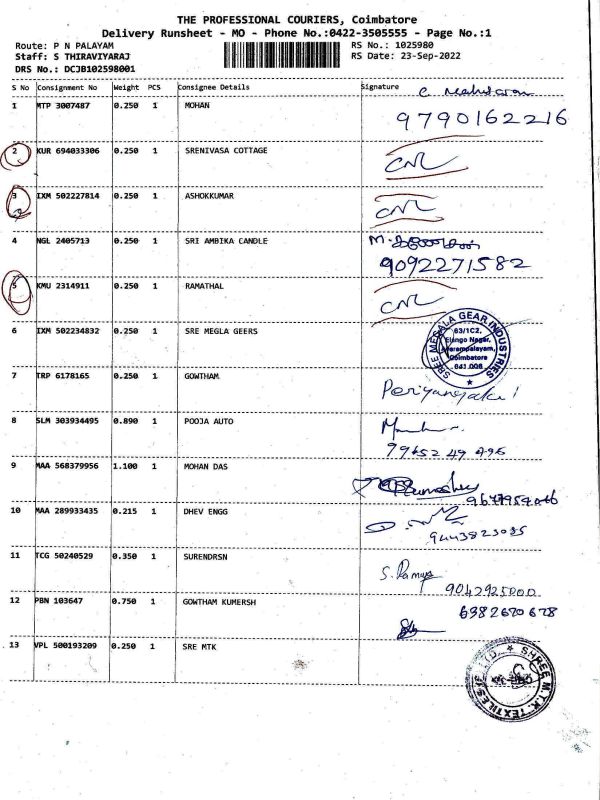 THE PROFESSIONAL COURIERS, Coimbatore
Delivery Runsheet - MO - Phone No.:0422-3505555 - Page No.:1
Route: P N PALAYAM RS No.: 1025980
Staff: S THIRAVIYARAJ RS Date: 23-Sep-2022
DRS No.: DCJB102598001
S No Consignment No Weight PCS Consignee Details Signature
1 MTP 3007487 0.250 1 MOHAN
9790162216
2 KUR 694033306 0.250 1 SRENIVASA COTTAGE CNL
3 IXM 502227814 0.250 1 ASHOKKUMAR CNL
4 NGL 2405713 0.250 1 SRI AMBIKA CANDLE
9092271582
5 KMU 2314911 0.250 1 RAMATHAL CNL
6 IXM 502234832 0.250 1 SRE MEGLA GEERS
SREE MEGALA GEAR INDUSTRIES
63/1C2,
Elango Nagar,
Coimbatore
641 006
7 TRP 6178165 0.250 1 GOWTHAM
8 SLM 303934495 0.890 1 POOJA AUTO
9 MAA 568379956 1.100 1 MOHAN DAS
10 MAA 289933435 0.215 1 DHEV ENGG
11 TCG 50240529 0.350 1 SURENDRSN S. Ramya
12 PBN 103647 0.750 1 GOWTHAM KUMERSH
13 VPL 500193209 0.250 1 SRE MTK
SHREE M.T.K. TEXTILES